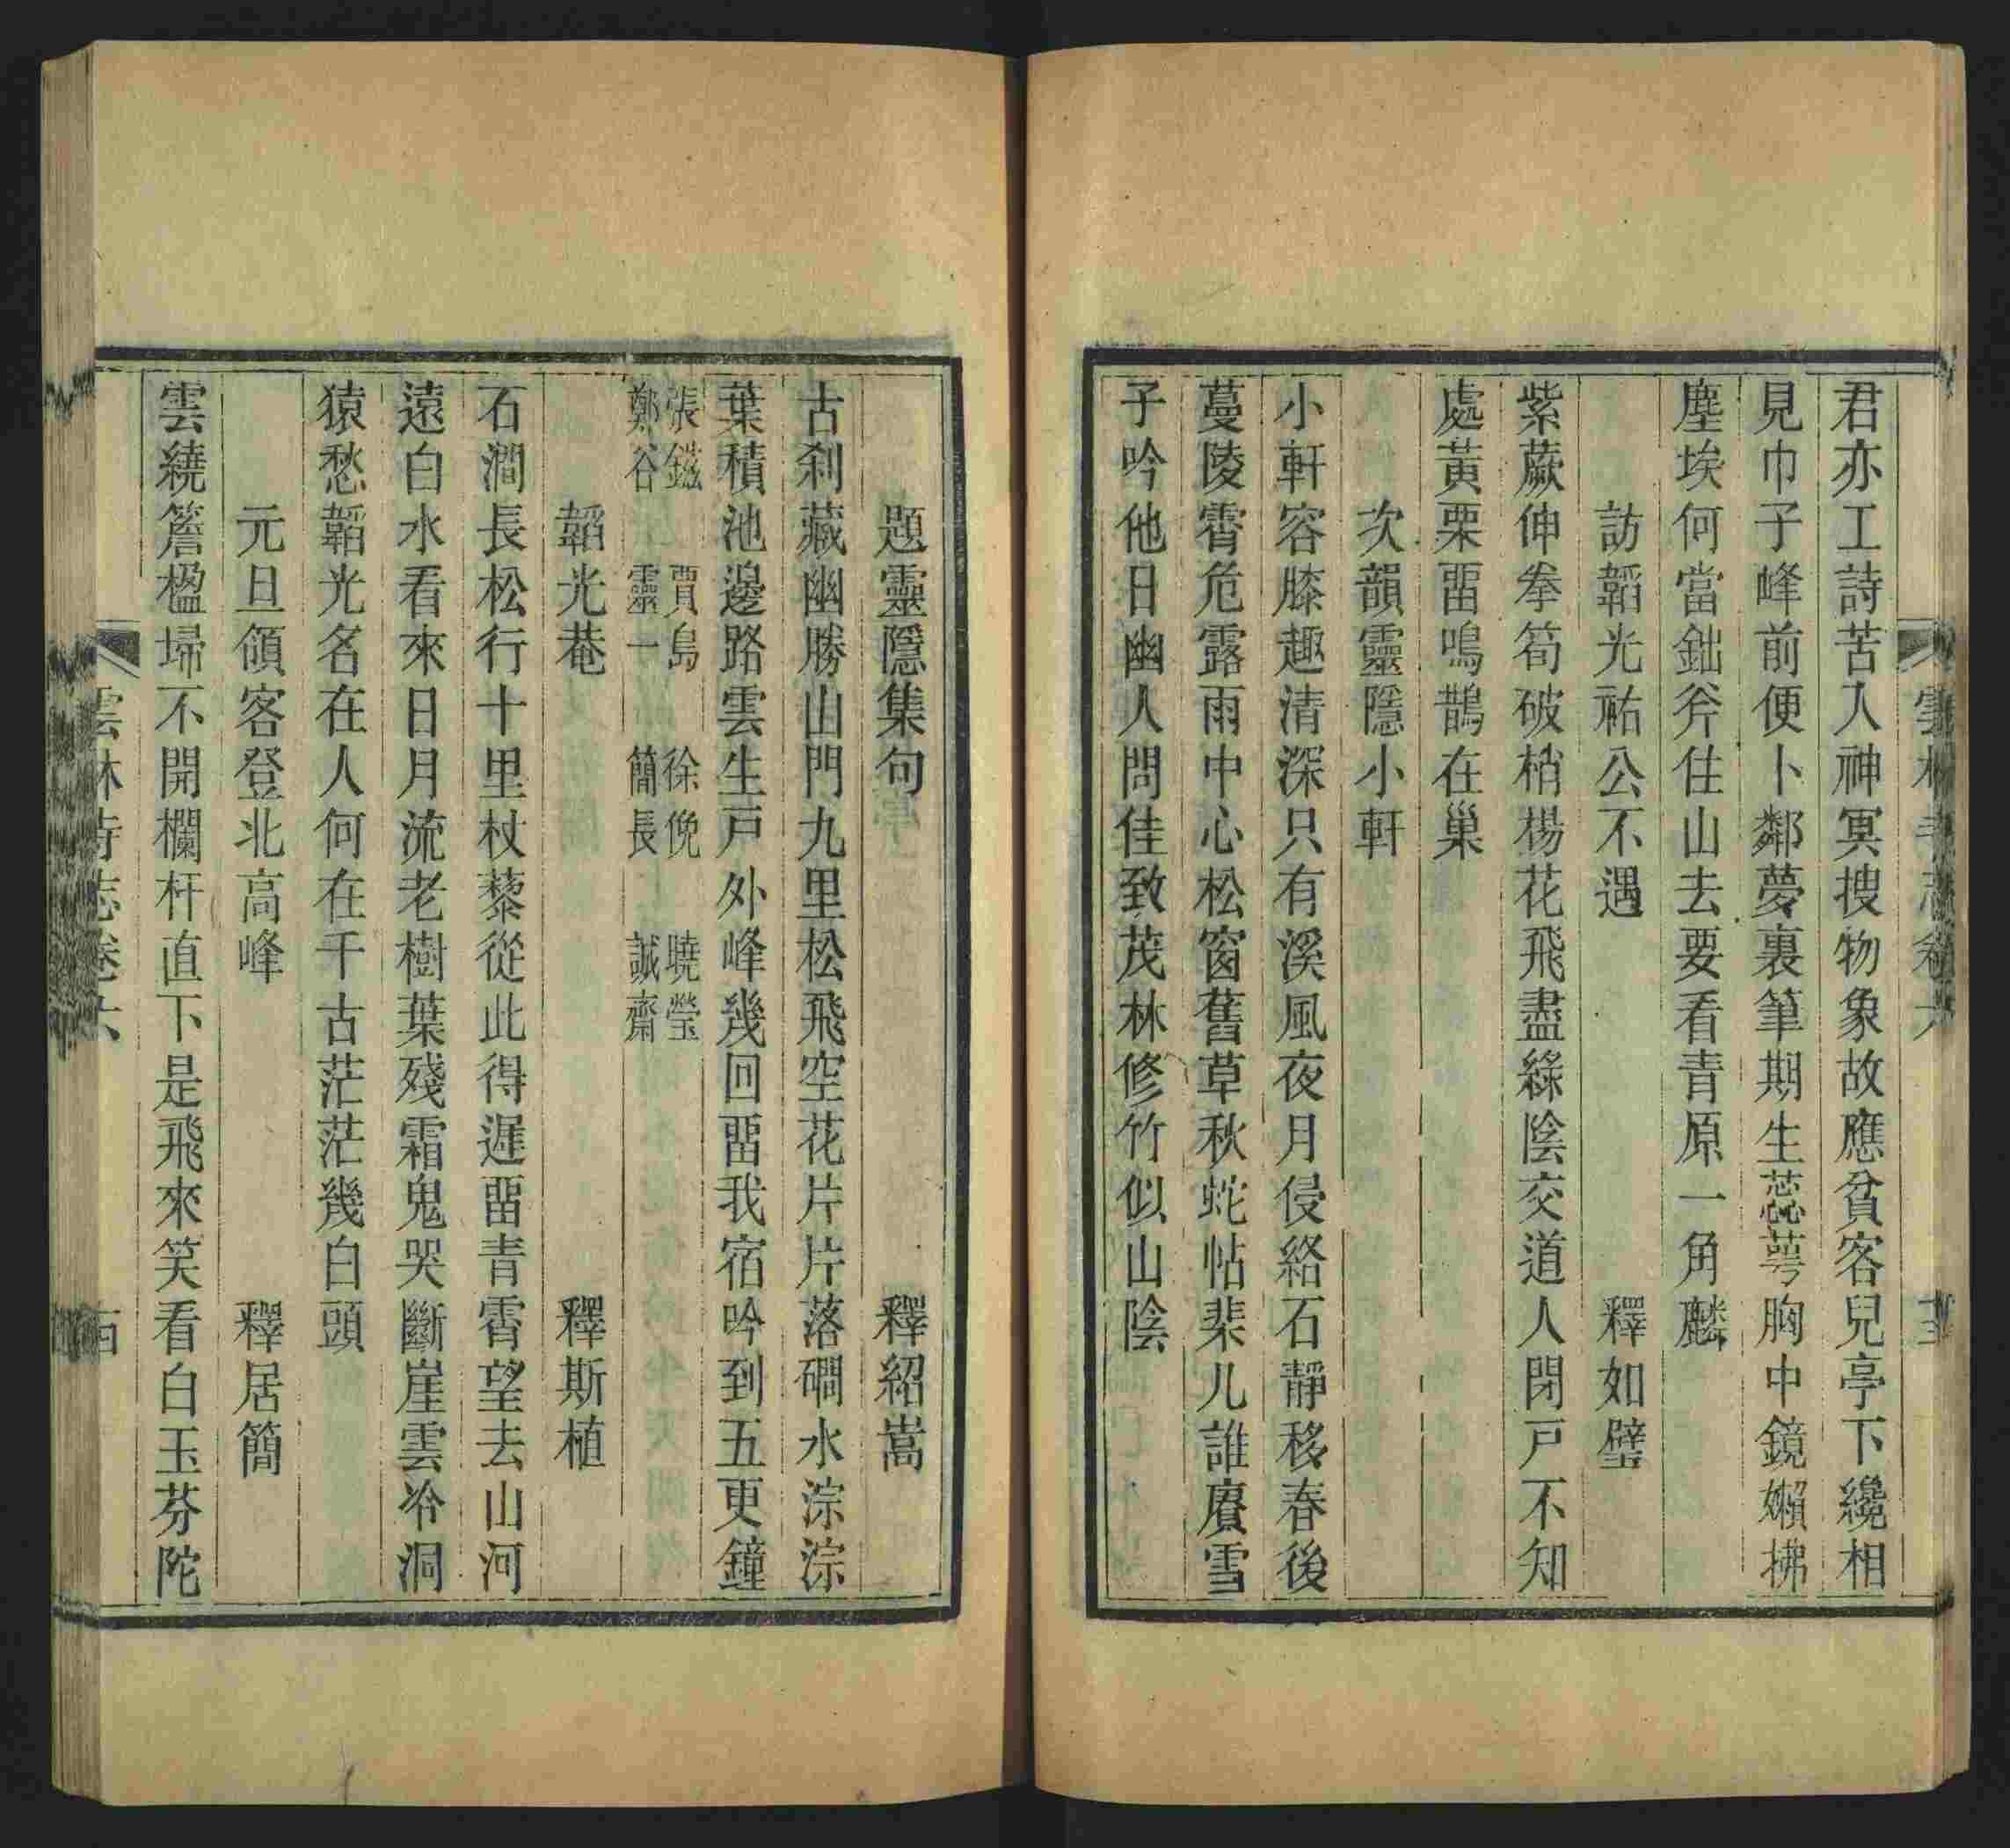 君亦工詩苦入神冥搜物象故應貧客兒亭下纔相
見巾子峰前便卜鄰夢裏筆期生蕊萼胸中鏡嬾拂
塵埃何當鈯斧住山去要看青原一角麟
訪韜光祐公不遇 釋如璧
紫蕨伸拳筍破梢楊花飛盡綠陰交道人閉戸不知
處黃栗畱鳴鵲在巢
次韻靈隱小軒
小軒容膝趣清深只有溪風夜月侵絡石靜移春後
蔓陵霄危露雨中心松窗舊草秋蛇帖棐几誰賡雪
子吟他日幽人問佳致茂林修竹似山陰
題靈隱集句 釋紹嵩
古刹藏幽勝山門九里松飛空花片片落磵水淙淙
葉積池邊路雲生戸外峰幾回畱我宿吟到五更鐘
張鎡 賈島 徐俛 曉瑩
鄭谷 靈一 簡長 誠齋
韜光菴 釋斯植
石澗長松行十里杖藜從此得遲畱青霄望去山河
遠白水看來日月流老樹葉殘霜鬼哭斷崖雲冷洞
猿愁韜光名在人何在千古茫茫幾白頭
元旦領客登北高峰 釋居簡
雲繞簷楹埽不開欄杆直下是飛來笑看白玉芬陀
雲林寺志卷六